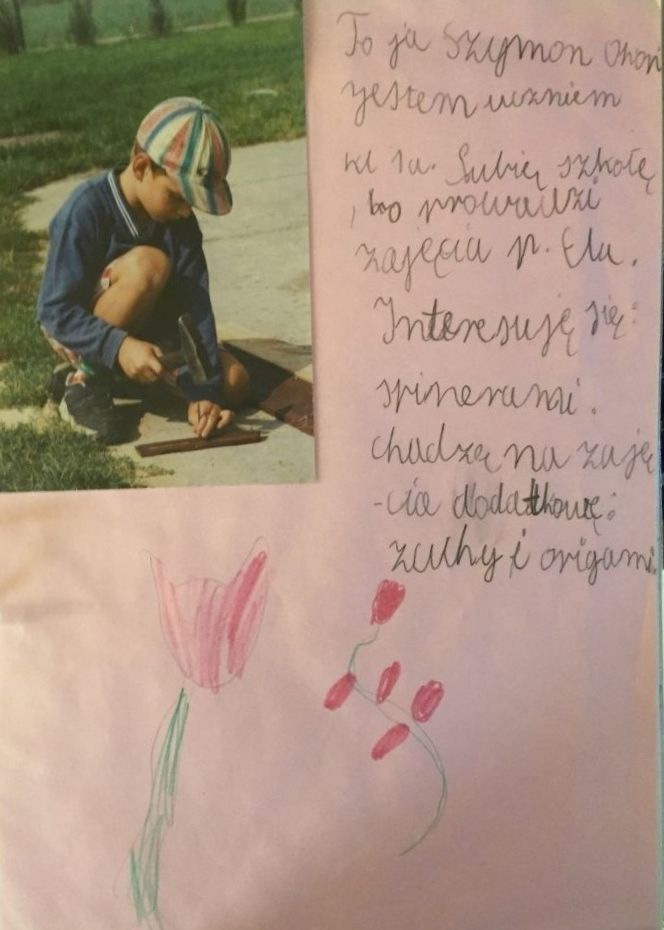 To ja Szymon
jestem uczniem
kl 1a. Lubię szkołę
, bo prowadzi
zajęcia p. Ela.
Interesuję się:
spinerami.
chodzę na zaję
-cia dodatkowe:
zuchy i origami.